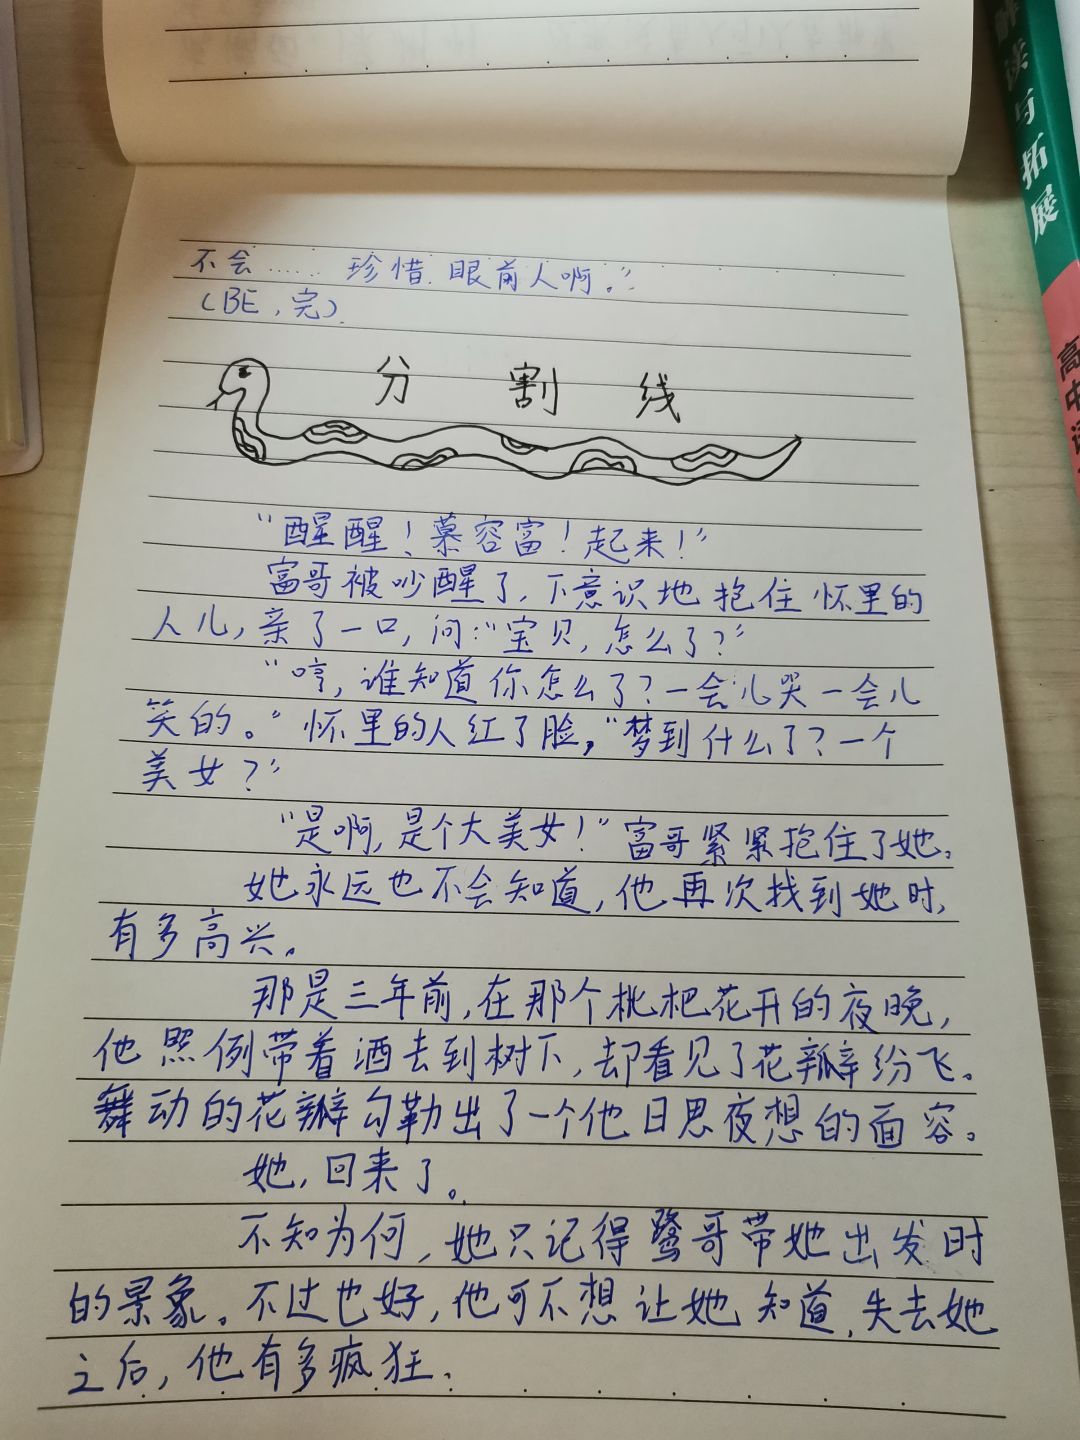 不会…… 珍惜眼前人啊。”
（BE，完）
分割线
“醒醒！慕容富！起来！”
富哥被吵醒了，下意识地抱住怀里的
人儿，亲了一口，问：“宝贝，怎么了？”
“哼，谁知道你怎么了？一会儿哭一会儿
笑的。”怀里的人红了脸，“梦到什么了？一个
美女？”
“是啊，是个大美女！”富哥紧紧抱住了她。
她永远也不会知道，他再次找到她时，
有多高兴。
那是三年前，在那个枇杷花开的夜晚，
他照例带着酒去到树下，却看见了花瓣纷飞。
舞动的花瓣勾勒出了一个他日思夜想的面容。
她，回来了。
不知为何，她只记得鹭哥带她出发时
的景象。不过也好，他可不想让她知道，失去她
之后，他有多疯狂。
解读与拓展
高中